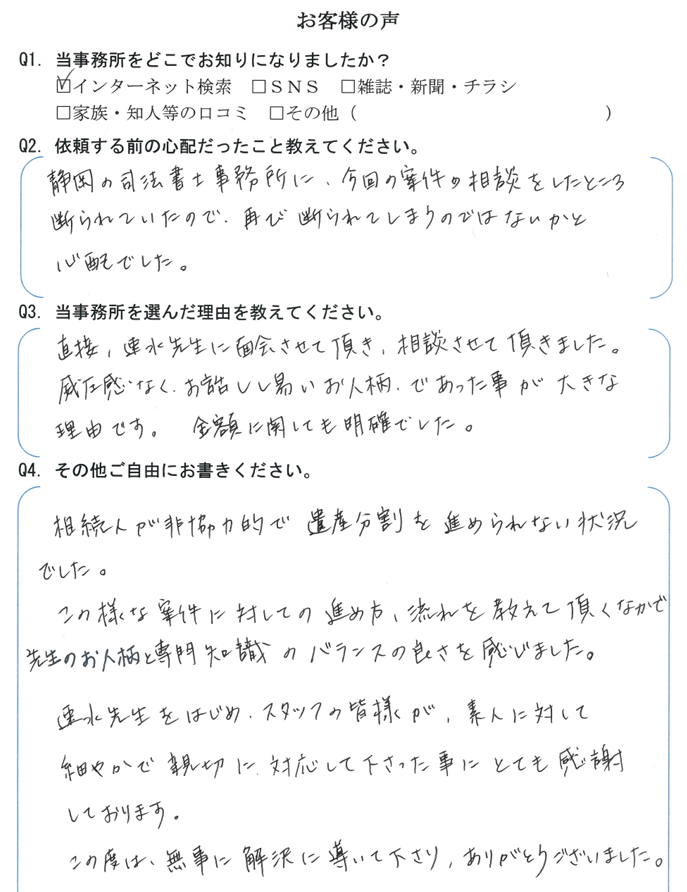 お客様の声
Q1. 当事務所をどこでお知りになりましたか？
☑インターネット検索 □ＳＮＳ □雑誌・新聞・チラシ
□家族・知人等の口コミ □その他（ ）
Q2. 依頼する前の心配だったこと教えてください。
静岡の司法書士事務所に、今回の案件の相談をしたところ
断られていたので、再び断られてしまうのではないかと
心配でした。
Q3. 当事務所を選んだ理由を教えてください。
直接、速水先生に面会させて頂き、相談させて頂きました。
威圧感なく、お話しし易いお人柄、であった事が大きな
理由です。 金額に関しても明確でした。
Q4. その他ご自由にお書きください。
相続人が非協力的で遺産分割を進められない状況
でした。
この様な案件に対しての進め方、流れを教えて頂くなかで
先生のお人柄と専門知識のバランスの良さを感じました。
速水先生をはじめ、スタッフの皆様が、素人に対して
細やかで親切に、対応して下さった事にとても感謝
しております。
この度は、無事に解決に導いて下さり、ありがとうございました。